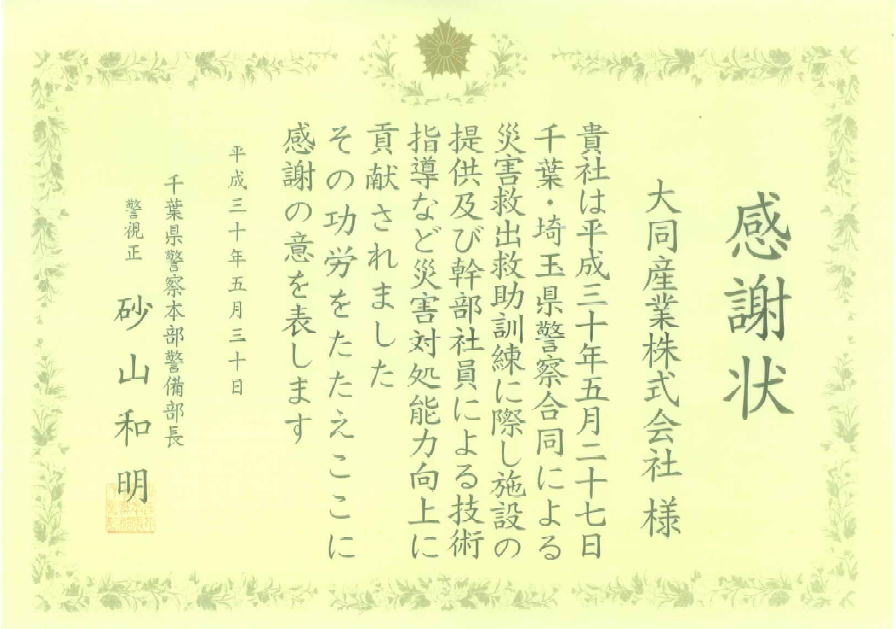 感謝状
大同産業株式会社 様
貴社は平成三十年五月二十七日
千葉・埼玉県警察合同による
災害救出救助訓練に際し施設の
提供及び幹部社員による技術
指導など災害対処能力向上に
貢献されました
その功労をたたえここに
感謝の意を表します
平成三十年五月三十日
千葉県警察本部警備部長
警視正 砂山和明